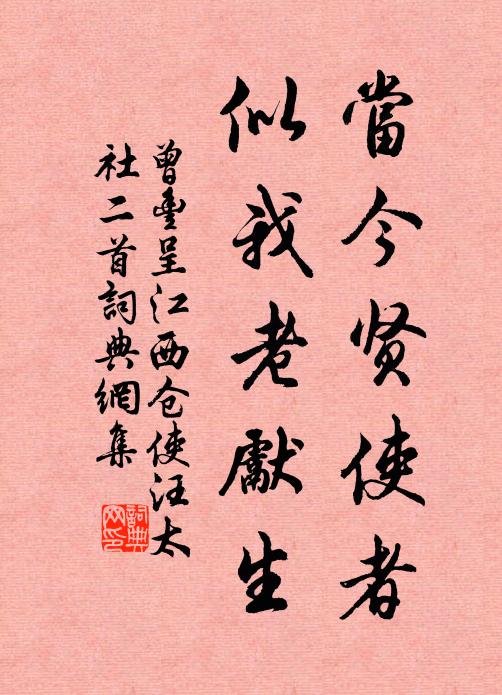 當今贤使者
似我老獻生
曾豊呈江西仓使汪太
社二首詞典網集
詞典网印